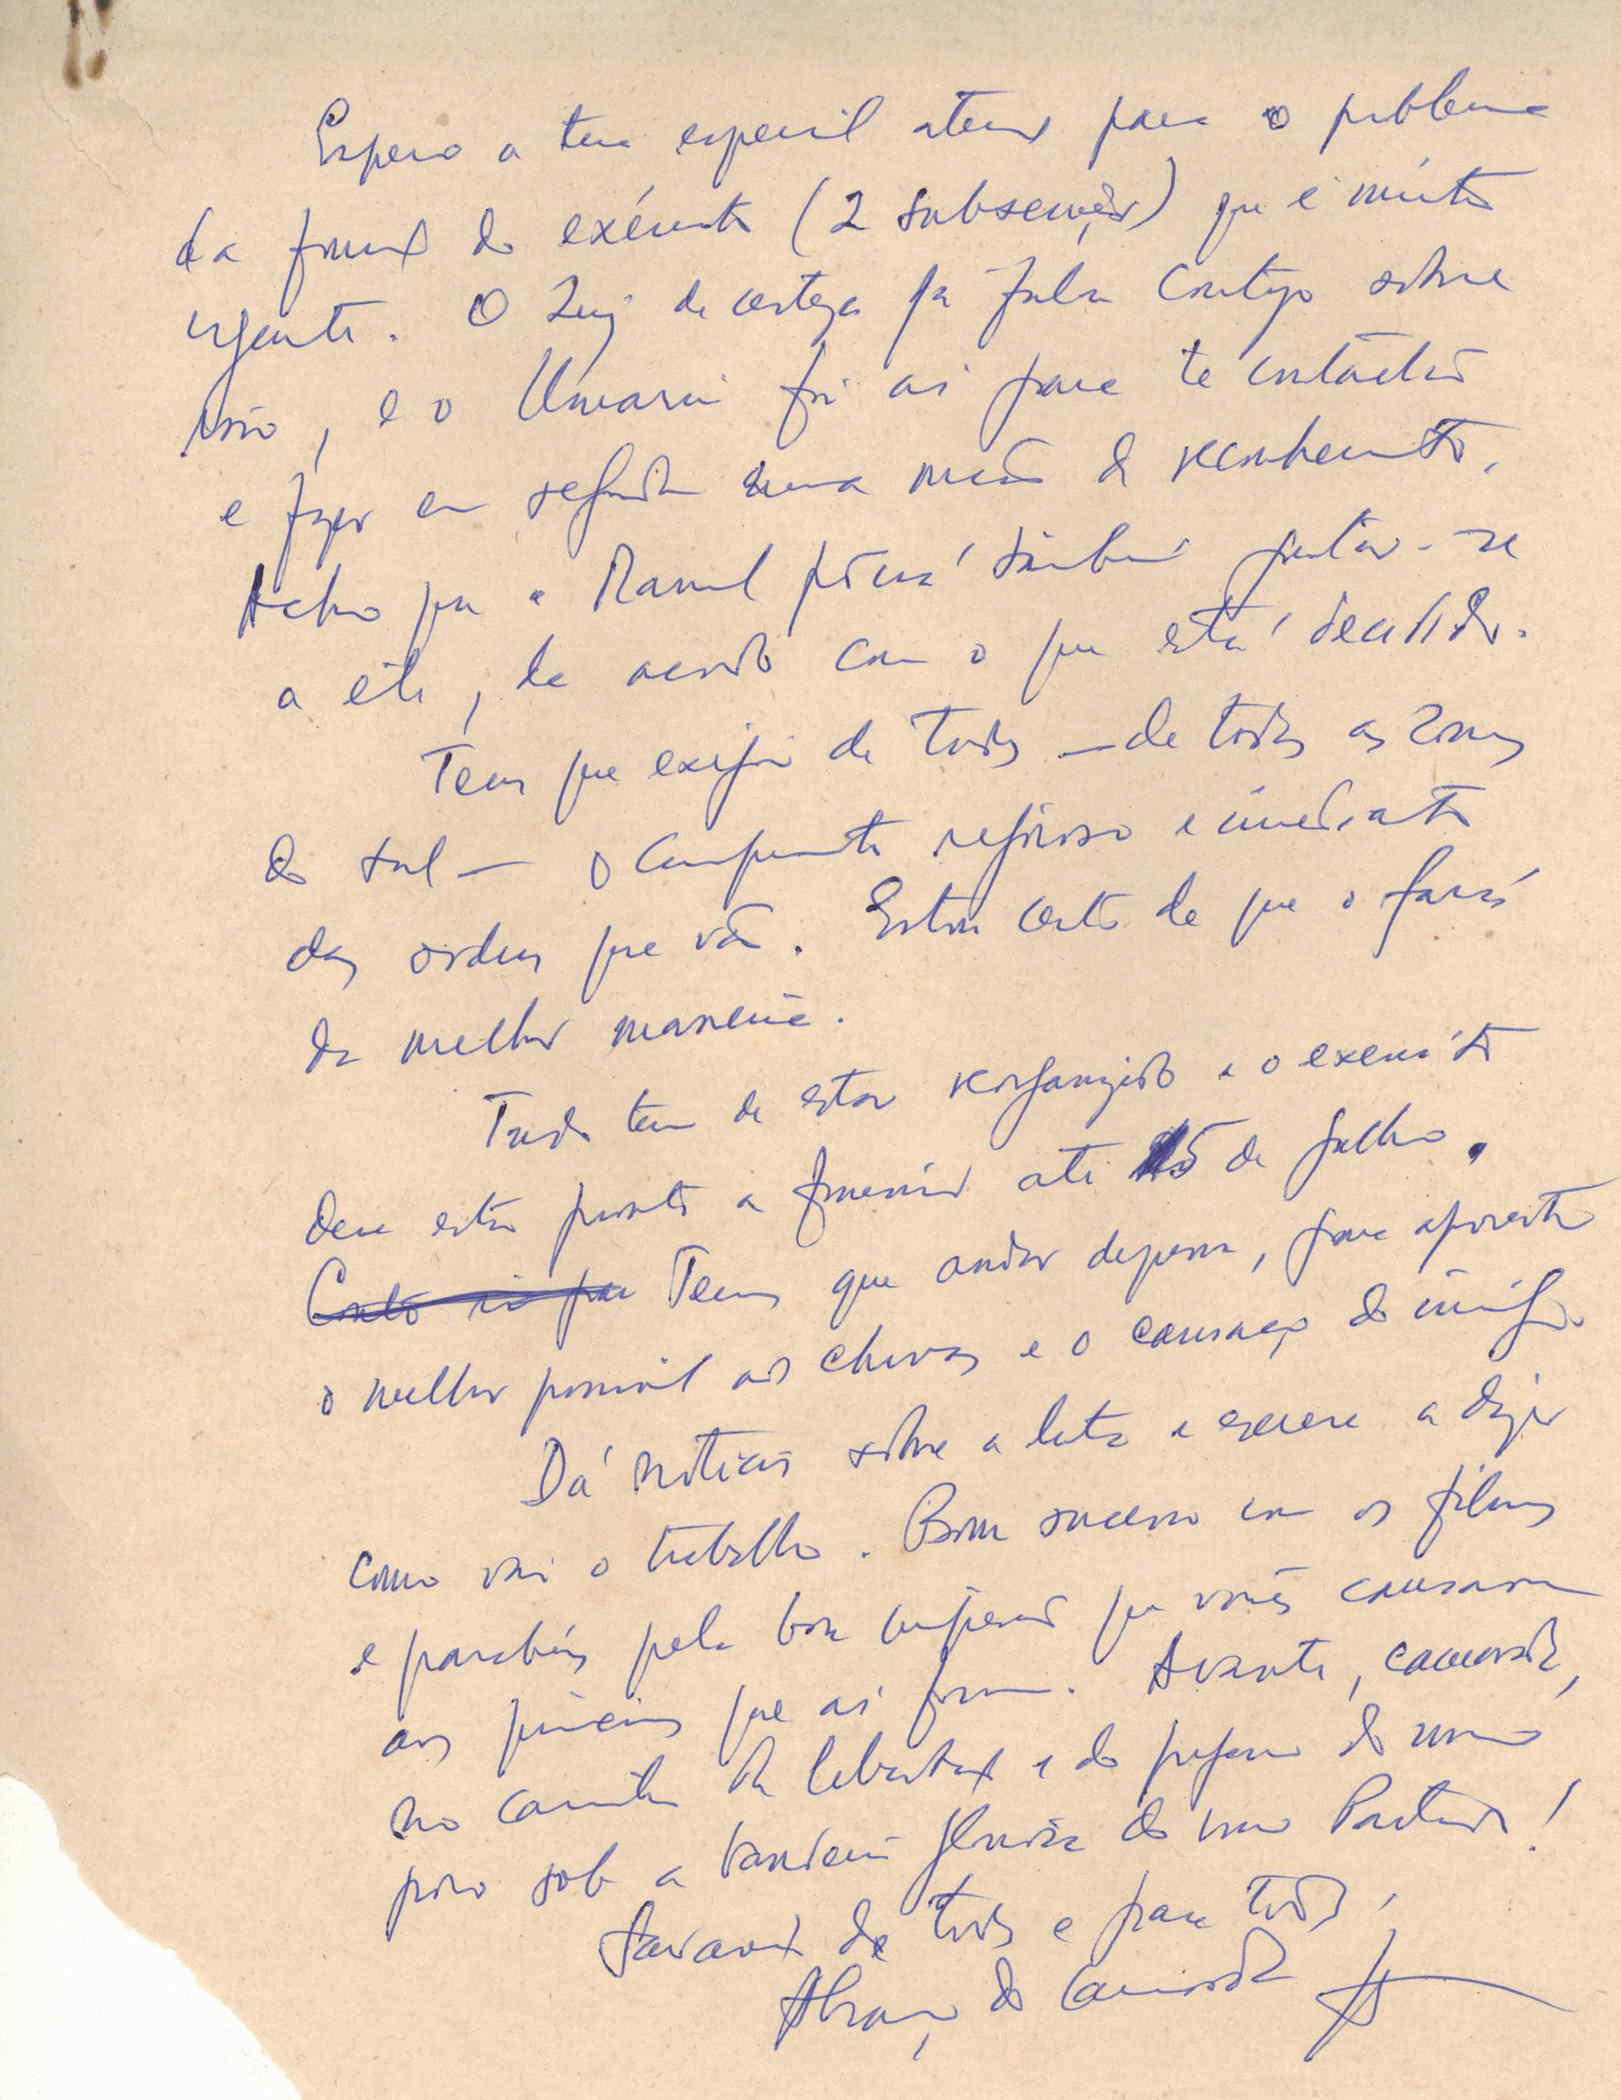 Espero a tua especial atenção para o problema
da frente do exército (2 subsecções) que é muito
urgente. O Luiz de certeza já falou contigo sobre
isso, e o Umaro foi aí para te contactar
e fazer em seguida uma missão de reconhecimento.
Acho que o Manuel poderá também juntar-se
a êle, de acordo com o que está decidido.
Tens que exigir de todos — de todas as zonas
do sul — o cumprimento rigoroso e imediato
das ordens que vão. Estou certo de que o farás
da melhor maneira.
Tudo tem de estar reorganizado e o exército
deve estar pronto a funcionar até 15 de Julho.
Tens que andar depressa, para aproveitar
o melhor possível as chuvas e o cansaço do inimigo.
Dá notícias sobre a luta e escreve a dizer
como vai o trabalho. Bom sucesso com os filmes
e parabéns pela boa impressão que vocês causaram
aos que aí foram. Avante, camarada,
no caminho da libertação e do progresso do nosso
povo sob a bandeira gloriosa do nosso Partido!
Saudações de todos e para todos,
Abraço do camarada